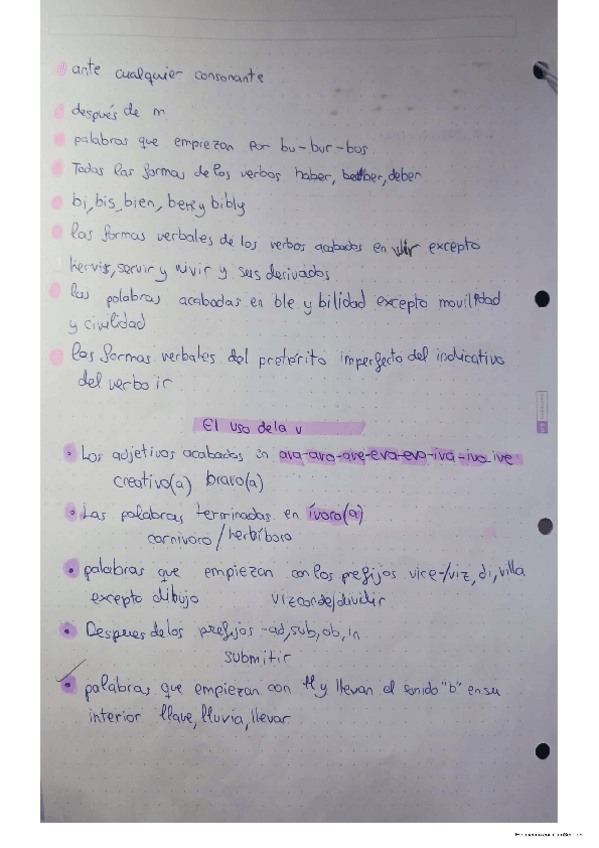 ante cualquier consonante
después de m
palabras que empiezan por bu-bur-bus.
Todas las formas de los verbos haber, beber, deber
bi, bis, bien, bene y bibly
las formas verbales de los verbos acabados en vir excepto
hervir, servir y vivir y sus derivados
las palabras acabadas en ble y bilidad excepto movilidad
y civilidad
las formas verbales del pretérito imperfecto del indicativo
del verbo ir
El uso de la v
Los adjetivos acabados en ava-avo-ave-eva-evo-iva-ivo_ive
creativo(a) bravo(a)
Las palabras terminadas en ívoro(a)
carnivoro/herbíboro
palabras que empiezan con los prefijos vice-/viz, di, villa
excepto dibujo vizconde/dividir
Despues de los prefijos -ad, sub, ob, in
submitir
palabras que empiezan con ll y llevan el sonido "b" en su
interior llave, lluvia, llevar